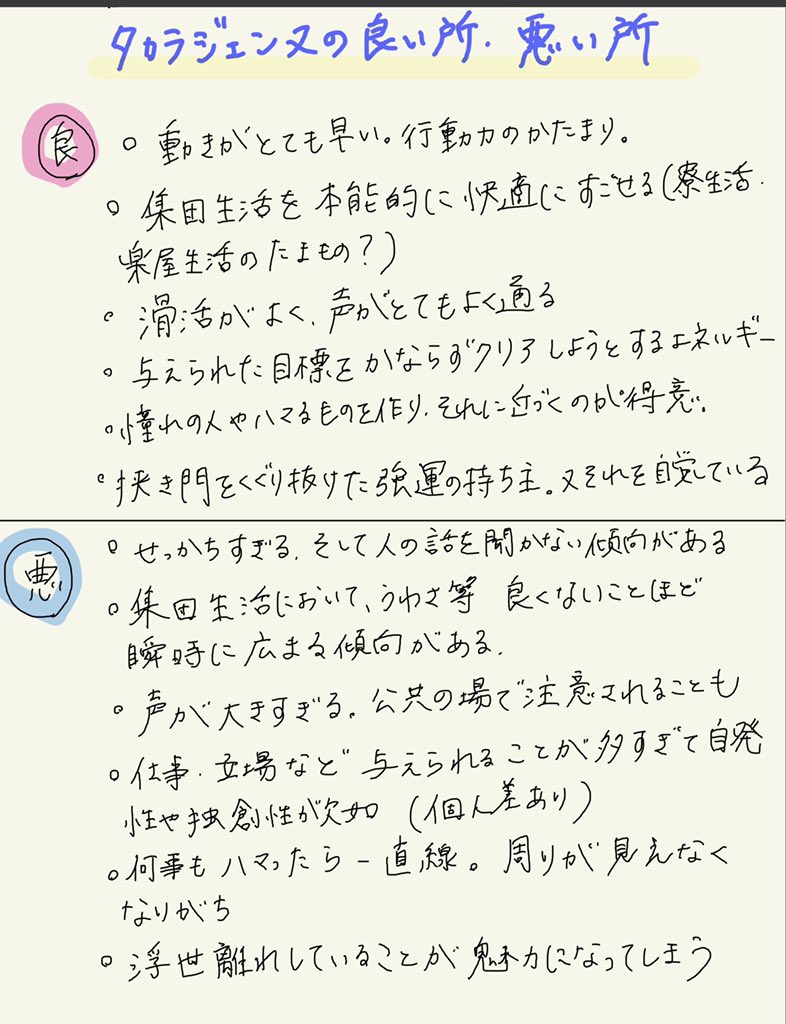 タカラジェンヌの良い所・悪い所
良
○ 動きがとても早い。行動力のかたまり。
○ 集団生活を本能的に快適にすごせる(寮生活・
楽屋生活のたまもの?)
○ 滑活がよく、声がとてもよく通る
○ 与えられた目標をかならずクリアしようとするエネルギー
○ 憧れの人やハマるものを作り、それに近づくのが得意。
○ 狭き門をくぐり抜けた強運の持ち主。又それを自覚している
悪
○ せっかちすぎる、そして人の話を聞かない傾向がある
○ 集団生活において、うわさ等 良くないことほど
瞬時に広まる傾向がある。
○ 声が大きすぎる。公共の場で注意されることも
○ 仕事・立場など与えられることが多すぎて自発
性や独創性が欠如 (個人差あり)
○ 何事もハマったら一直線。周りが見えなく
なりがち
○ 浮世離れしていることが魅力になってしまう